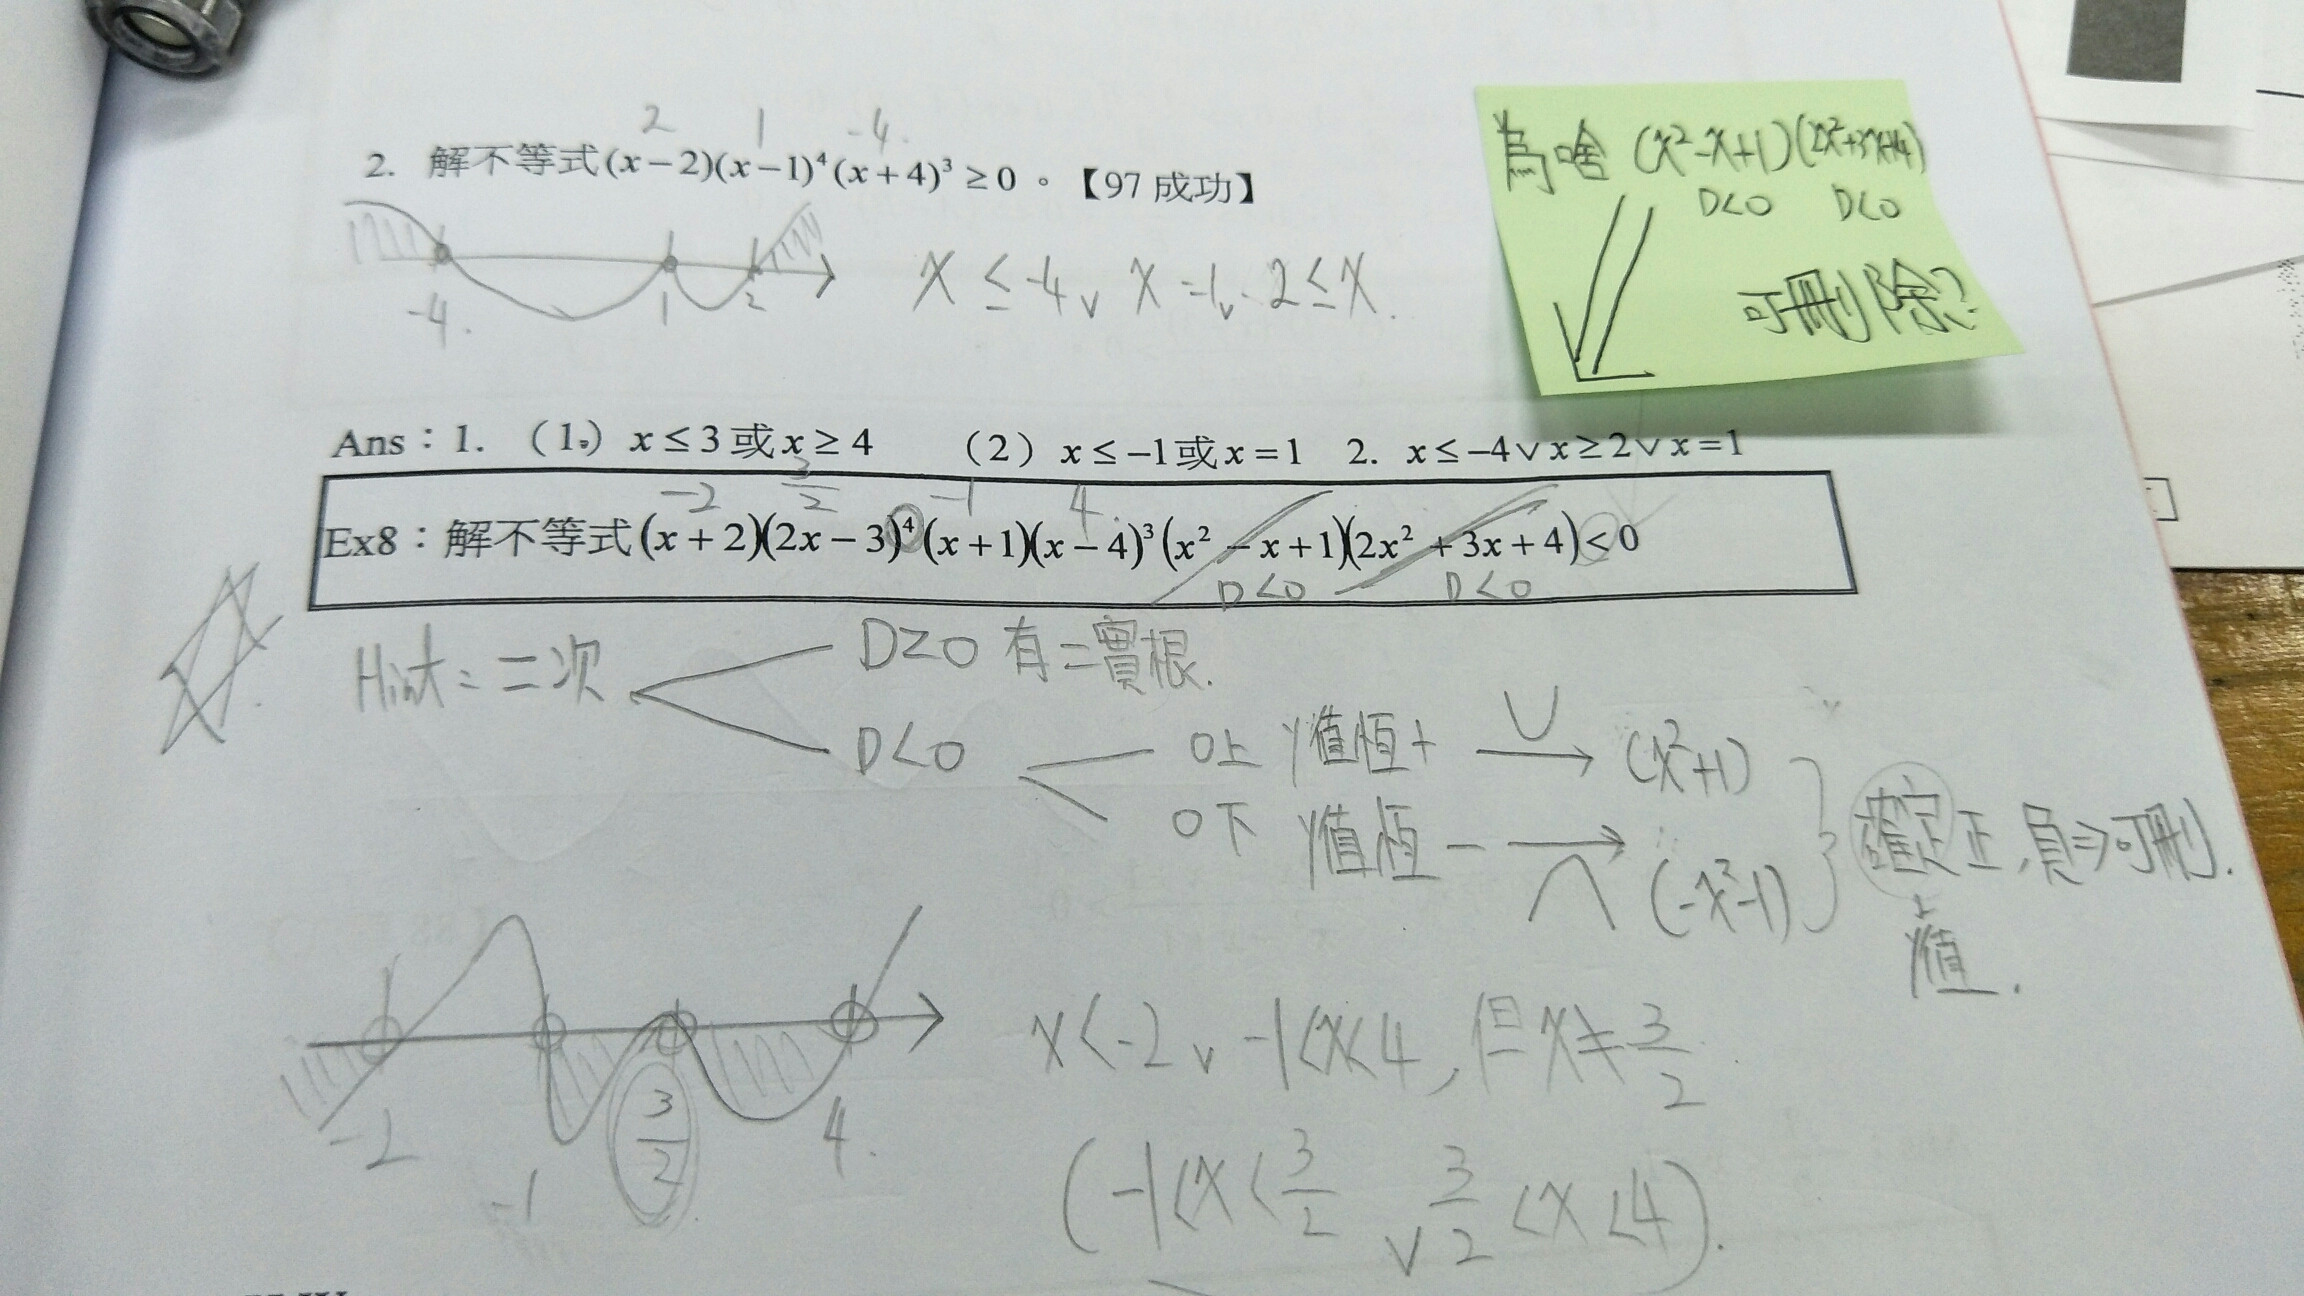 2 1 -4.
2. 解不等式(x−2)(x−1)⁴(x+4)³≥0。【97成功】
-4. 1 2
x≤-4∨x=1∨2≤x.
為啥(x²-x+1)(2x²+3x+4)
D<0 D<0
可刪除?
Ans:1. (1.) x≤3或x≥4 (2) x≤−1或x=1 2. x≤−4∨x≥2∨x=1
-2 3/2 -1 4.
Ex8:解不等式(x+2)(2x−3)⁴(x+1)(x−4)³(x²−x+1)(2x²+3x+4)<0
D<0 D<0
Hint:二次
D≥0 有二實根.
D<0
0上 y值恆+ (x²+1)
0下 y值恆− (-x²-1)
確定正,負⇒可刪.
y值.
-2 -1 3/2 4.
x<-2∨-1<x<4,但x≠3/2
(-1<x<3/2∨3/2<x<4).